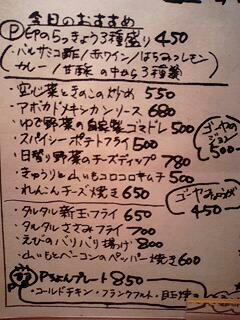 今日のおすすめ
Ⓟ印のらっきょう3種盛り 450
・バルサミコ酢/赤ワイン/はちみつレモン
カレー/甘酢 の中から3種類
・空心菜ときのこの炒め 550
・アボカドメキシカンソース 680
・ゆで野菜の自家製ゴマドレ 500
・スパイシーポテトフライ 500
・日替り野菜のチーズディップ 780
・きゅうりと山いもコロコロキムチ 500
・れんこんチーズ焼き 650
ゴーヤの
500
ゴーヤ
450
・タルタル新玉フライ 650
・タルタルささみフライ 700
・えびのバリバリ揚げ 800
・山いもとベーコンのペッパー焼き 600
Pちゃんプレート 850
・コールドチキン・フランクフルト・目玉焼